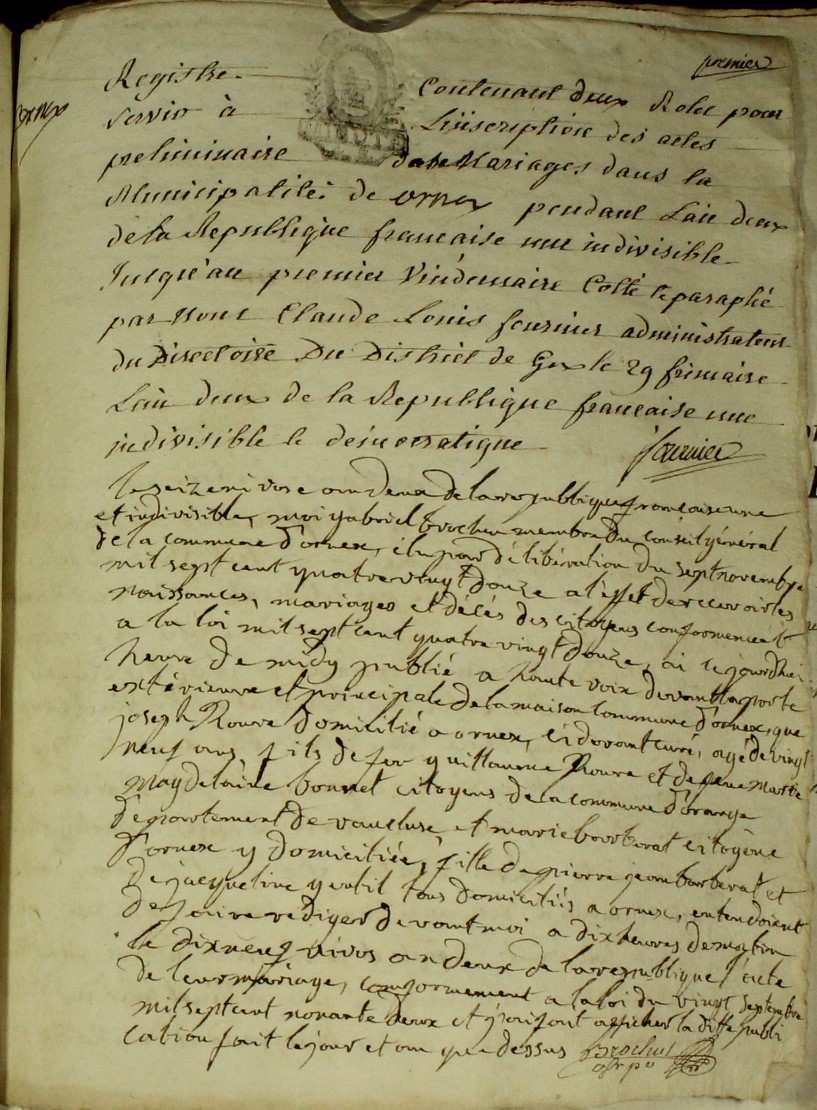 premier
ornex
Registre Contenant deux Rolet pour
servir à L'inscription des actes
preliminaire de Mariages dans la
Municipalité de ornex pendant L'an deux
de la Republique francaise une indivisible
Jusqu'au premier Vindémiaire Cotté et paraphé
par Nous Claude Louis fournier administrateur
du Directoire Du District de Gex le 29 frimaire
L'an deux de la Republique francaise une
indivisible et démocratique
fournier
le seize nivose an deux de la republique francaise une
et indivisible, moi gabriel brochu membre du conseil général
de la commune d'ornex, élu par délibération du sept novembre
mil sept cent quatre vingt douze a l'effet de recevoir les
naissances, mariages et décés des citoyens conformement
a la loi mil sept cent quatre vingt douze, ai cejourdhui
heure de midy publié a haute voix devant la porte
extérieure et principale de la maison commune d'ornex, que
joseph Roure domicilié a ornex, ci devant curé, agé de vingt
neuf ans, fils de feu guillaume Roure et de jeane marie
magdelaine bonnet citoyens de la commune d'orange
département de vaucluse et marie barberat citoyène
d'ornex y domiciliée, fille de pierre jean barberat et
de jacqueline gentil tous domiciliés a ornex, entendoient
de faire rediger devant moi a dix heures du matin
le dixneuf nivos an deux de la republique l'acte
de leur mariage, conformement a la loi du vingt septembre
mil sept cent nonante deux et j'ai fait afficher la ditte publi
cation fait le jour et an que dessus Brochu
off pu